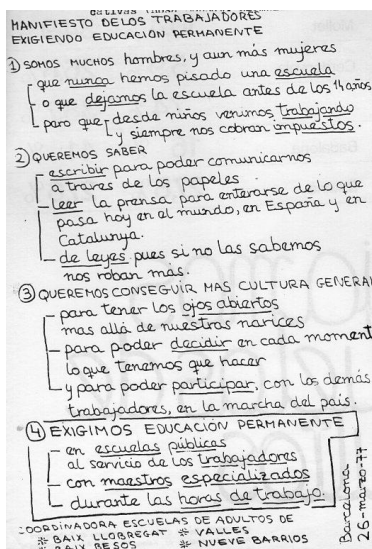 MANIFIESTO DE LOS TRABAJADORES
EXIGIENDO EDUCACIÓN PERMANENTE
① SOMOS MUCHOS hombres, y aun más mujeres
que nunca hemos pisado una escuela
o que dejamos la escuela antes de los 14 años
pero que desde niños venimos trabajando
y siempre nos cobran impuestos.
② QUEREMOS SABER
escribir para poder comunicarnos
a traves de los papeles
leer la prensa para enterarse de lo que
pasa hoy en el mundo, en España y en
Catalunya.
de leyes pues si no las sabemos
nos roban más.
③ QUEREMOS CONSEGUIR MAS CULTURA GENERAL
para tener los ojos abiertos
mas allá de nuestras narices
para poder decidir en cada moment
lo que tenemos que hacer
y para poder participar, con los demás
trabajadores, en la marcha del pais.
④ EXIGIMOS EDUCACIÓN PERMANENTE
en escuelas públicas
al servicio de los trabajadores
con maestros especializados
durante las horas de trabajo.
COORDINADORA ESCUELAS DE ADULTOS DE
* BAIX LLOBREGAT * VALLES
* BAIX BESOS * NUEVE BARRIOS
Barcelona
26-marzo-77